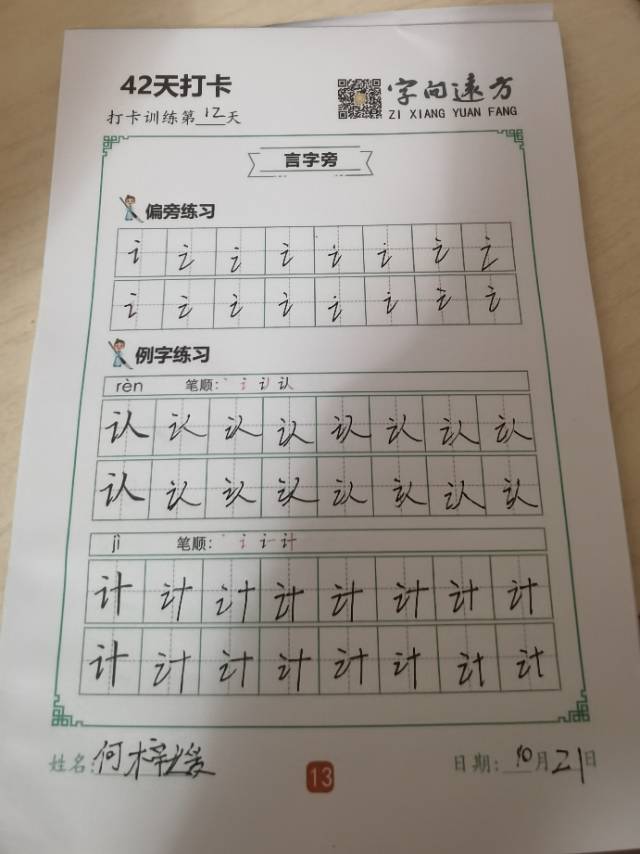 42天打卡
字向遠方
ZI XIANG YUAN FANG
打卡训练第12天
言字旁
偏旁练习
讠 讠 讠 讠 讠 讠 讠 讠
讠 讠 讠 讠 讠 讠 讠 讠
例字练习
rèn 笔顺: 丶 讠 讠丿 认
认 认 认 认 认 认 认 认
认 认 认 认 认 认 认 认
jì 笔顺: 丶 讠 讠一 计
计 计 计 计 计 计 计 计
计 计 计 计 计 计 计 计
姓名:何梓媛
13
日期:10月21日